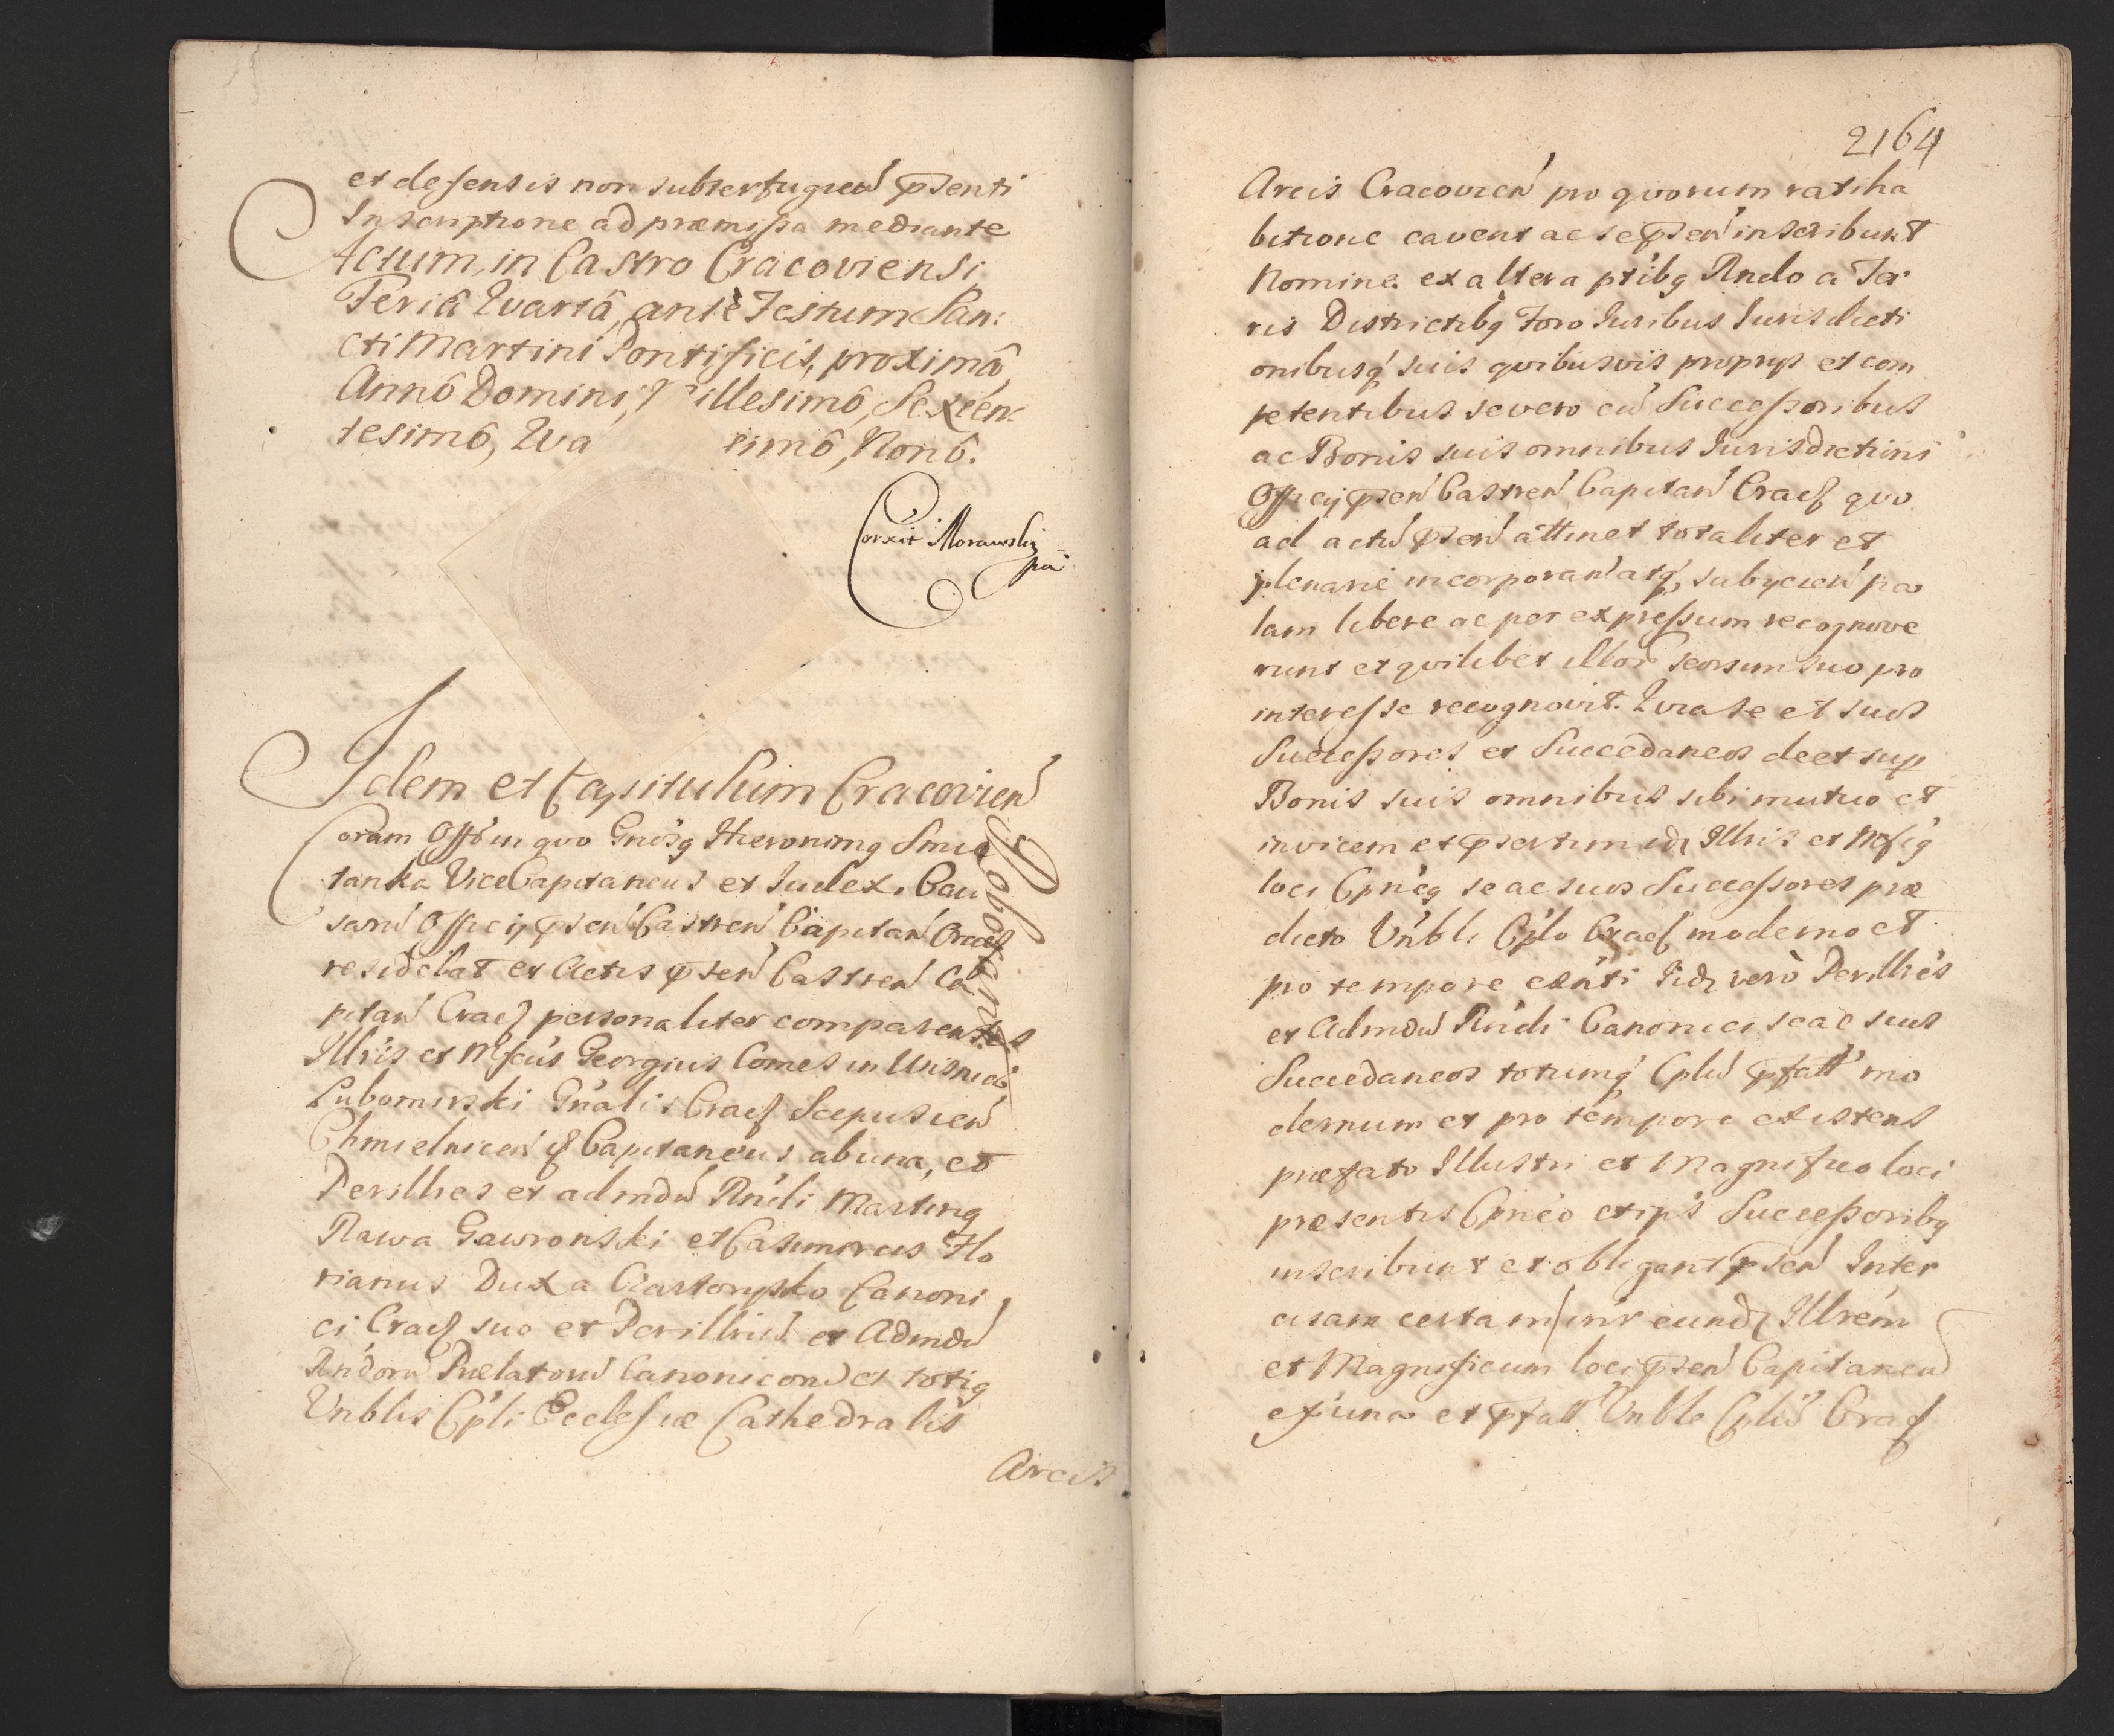 et defensis non subterfugien̄ pr̄senti
Inscriptione ad præmissa mediante
Actum, in Castro Cracoviensi
Feriâ Quartâ, antè Festum San:
cti Martini Pontificis, proximâ
Annô Domini, illesimô, Sexcen:
tesimô, Qua simô, Nonô.
Corxit Morawsky
pa
Idem et Capitulum Cracovien̄
Oblatant
Coram Offō in quo Gnōsq Hieronimq Smie
tanka ViceCapitaneus et Iudex Cau
sarū Officij pr̄sen̄ Castren̄ Capitan̄ Cracf
residebat et Actis pr̄sen̄ Castren̄ Ca
pitan̄ Cracf personaliter comparentes
Illr̄is et Mfcūs Georgius Comes in Wisnicz
Lubomirski Gnāli: Cracf Scepusien̄
Chmielnicen̄ q Capitaneus ab una, et
Perillres et admdū Rn̄di Martinq
Rawa Gawronski et Casimirus Flo
rianus Dux a Czartorysko Canoni
ci Cracf suo et Perillriū et Admdū
Rn̄dorū Prælatorū Canonicorū et totiq
Vnblis Cpl̄i Ecclesiæ Cathedralis
Arcis
2164
Arcis Cracovien̄ pro quorum ratiha
bitione cavent ac se pr̄sen̄ inscribunt
Nomine ex altera ptibq Rndo a Ter
ris Districtibq Foro Iuribus Iurisdicti
onibusq suis quibusvis proprys et com
petentibus se vero cū Successoribus
ac Bonis suis omnibus Iurisdictioni
Officij pr̄sen̄ Castren̄ Capitan̄ Cracf quo
ad actū pr̄sen̄ attinet totaliter et
plenarie incorporan̄ atq, subycien̄ pa
lam libere ac per expressum recognove
runt et quilibet illorū seorsum suo pro
interesse recognovit. Quia se et suos
Successores et Succedaneos de et sup
Bonis suis omnibus sibi mutuo et
invicem et pr̄sertim idq Illr̄is et Mfcq
loci Cpn̄eq se ac suos Successores præ
dicto Vn̄bli Cpl̄o Cracf moderno et
pro tempore exn̄ti Iidq verò Perillr̄es
et Admdū Rn̄di Canonici se ac suos
Succedaneos totumq Cplū pr̄fatt mo
dernum et pro tempore existens
præfato Illustri et Magnifico loci
præsentis Cpn̄eo et ip̄s Successoribq
inscribunt et obligant pr̄sen̄ Inter
cisam certam intr eundq Illrem
et Magnificum loci pr̄sen̄ Capitaneū
ex una et pr̄fatt Vnble Cplū Cracf